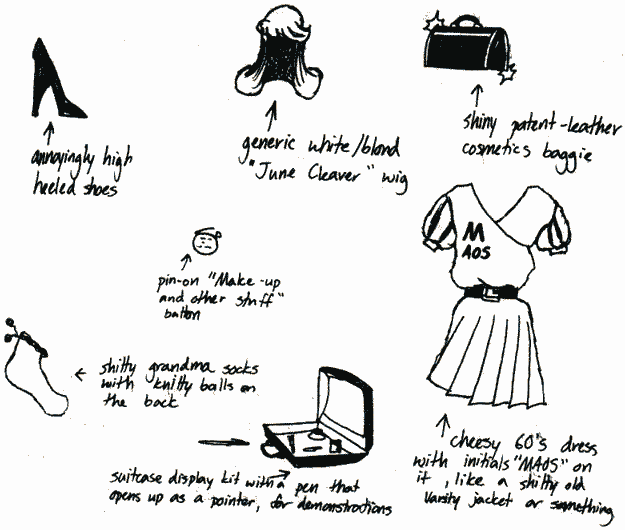 annoyingly high
heeled shoes
generic white/blond
"June Cleaver" wig
shiny patent-leather
cosmetics baggie
M
AOS
pin-on "Make-up
and other stuff"
button
shitty grandma socks
with knitty balls on
the back
suitcase display kit with a pen that
opens up as a pointer, for demonstrations
cheesy 60's dress
with initials "MAOS" on
it, like a shitty old
varsity jacket or something